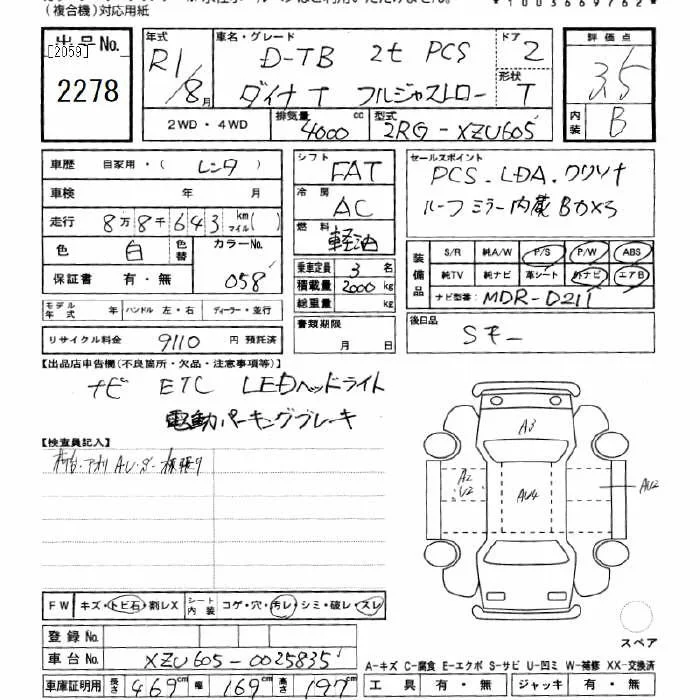 (複合機)対応用紙
*1003669762*
出品No.
[2059]
2278
年式 R1/8月
車名・グレード D-TB 2t PCS
ダイナT フルジャストロー
ドア 2
形状 T
評価点 3.5
内装 B
2WD・4WD
排気量 4000 cc
型式 2RG-XZU605
車歴 自家用・(レンタ)
車検 年 月
走行 8万8千643 km マイル( )
色 白
色替
カラーNo. 058
保証書 有・無
モデル年式 年 ハンドル 左・右 ディーラー・並行
リサイクル料金 9110 円 預託済
シフト FAT
冷房 AC
燃料 軽油
乗車定員 3 名
積載量 2000 kg
総重量 kg
書類期限
月 日
セールスポイント
PCS. LDA. クリソナ
ルーフ ミラー内蔵 BOX3
装備品
S/R 純A/W P/S P/W ABS
純TV 純ナビ 革シート 社ナビ エアB
ナビ型番: MDR-D211
後日品
Sキー
【出品店申告欄(不良箇所・欠品・注意事項等)】
ナビ ETC LEDヘッドライト
電動パーキングブレーキ
【検査員記入】
荷台・アオリ AU・ゲー 板張り
A3
A2
U2
AU4
AU2
FW キズ・トビ石・割レX
シート内装 コゲ・穴・汚レ・シミ・破レ・スレ
登録No.
車台No. XZU605-0025835
車庫証明用 長さ 469cm 幅 169cm 高さ 197cm
スペア
A-キズ C-腐食 E-エクボ S-サビ U-凹ミ W-補修 XX-交換済
工具 有・無 ジャッキ 有・無